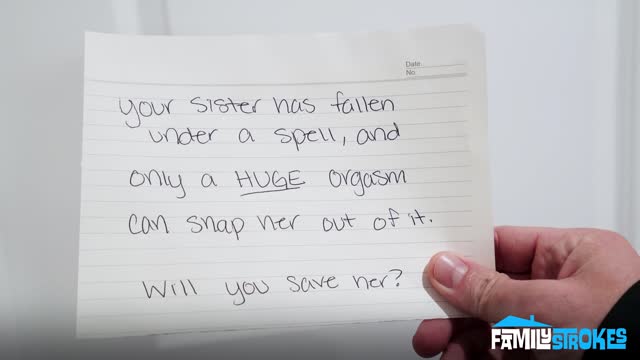 Date
No
your sister has fallen
under a spell, and
only a HUGE orgasm
can snap her out of it.
Will you save her?
FAMILYSTROKES